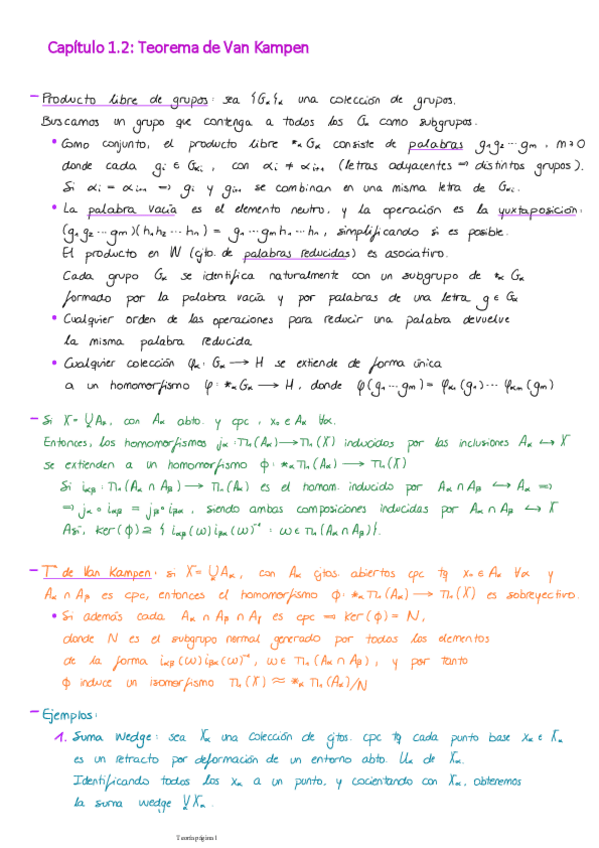 Capítulo 1.2: Teorema de Van Kampen
– Producto libre de grupos: sea {Gα}α una colección de grupos.
Buscamos un grupo que contenga a todos los Gα como subgrupos.
• Como conjunto, el producto libre *α Gα consiste de palabras g₁g₂⋯gm, m≥0
donde cada gi ∈ Gαi, con αi ≠ αi+1 (letras adyacentes ⇒ distintos grupos).
Si αi = αi+1 ⇒ gi y gi+1 se combinan en una misma letra de Gαi.
• La palabra vacía es el elemento neutro, y la operación es la yuxtaposición:
(g₁g₂⋯gm)(h₁h₂⋯hn) = g₁⋯gmh₁⋯hn, simplificando si es posible.
El producto en W (cjto. de palabras reducidas) es asociativo.
Cada grupo Gα se identifica naturalmente con un subgrupo de *α Gα
formado por la palabra vacía y por palabras de una letra g ∈ Gα
• Cualquier orden de las operaciones para reducir una palabra devuelve
la misma palabra reducida
• Cualquier colección φα: Gα → H se extiende de forma única
a un homomorfismo φ: *α Gα → H, donde φ(g₁⋯gm) = φα₁(g₁)⋯φαm(gm)
– Si X = ∪α Aα, con Aα abto. y cpc, x₀ ∈ Aα ∀α.
Entonces, los homomorfismos jα: Π₁(Aα) → Π₁(X) inducidos por las inclusiones Aα ↪ X
se extienden a un homomorfismo ϕ: *α Π₁(Aα) → Π₁(X)
Si iαβ: Π₁(Aα ∩ Aβ) → Π₁(Aα) es el homom. inducido por Aα ∩ Aβ ↪ Aα ⇒
⇒ jα ∘ iαβ = jβ ∘ iβα, siendo ambas composiciones inducidas por Aα ∩ Aβ ↪ X
Así, ker(ϕ) ⊇ { iαβ(ω)iβα(ω)⁻¹ : ω ∈ Π₁(Aα ∩ Aβ)}.
– T de Van Kampen: si X = ∪α Aα, con Aα cjtos. abiertos cpc tq x₀ ∈ Aα ∀α y
Aα ∩ Aβ es cpc, entonces el homomorfismo ϕ: *α Π₁(Aα) → Π₁(X) es sobreyectivo.
• Si además cada Aα ∩ Aβ ∩ Aγ es cpc ⇒ ker(ϕ) = N,
donde N es el subgrupo normal generado por todos los elementos
de la forma iαβ(ω)iβα(ω)⁻¹, ω ∈ Π₁(Aα ∩ Aβ), y por tanto
ϕ induce un isomorfismo Π₁(X) ≈ *α Π₁(Aα)/N
– Ejemplos:
1. Suma wedge: sea Xα una colección de cjtos. cpc tq cada punto base xα ∈ Xα
es un retracto por deformación de un entorno abto. Uα de Xα.
Identificando todos los xα a un punto, y cocientando con Xα, obtenemos
la suma wedge ∨α Xα.
Teoría página 1